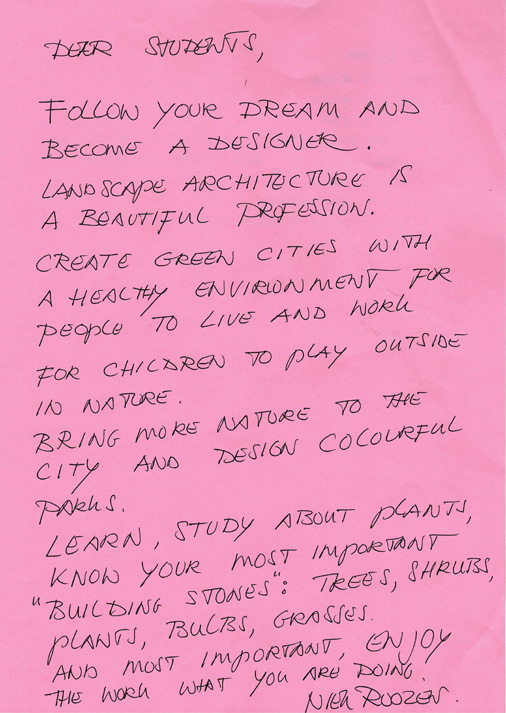 DEAR STUDENTS,
FOLLOW YOUR DREAM AND
BECOME A DESIGNER.
LANDSCAPE ARCHITECTURE IS
A BEAUTIFUL PROFESSION.
CREATE GREEN CITIES WITH
A HEALTHY ENVIRIONMENT FOR
PEOPLE TO LIVE AND WORK
FOR CHILDREN TO PLAY OUTSIDE
IN NATURE.
BRING MORE NATURE TO THE
CITY AND DESIGN COLOURFUL
PARKS.
LEARN, STUDY ABOUT PLANTS,
KNOW YOUR MOST IMPORTANT
"BUILDING STONES": TREES, SHRUBS,
PLANTS, BULBS, GRASSES.
AND MOST IMPORTANT, ENJOY
THE WORK WHAT YOU ARE DOING.
NIEK ROOZEN.